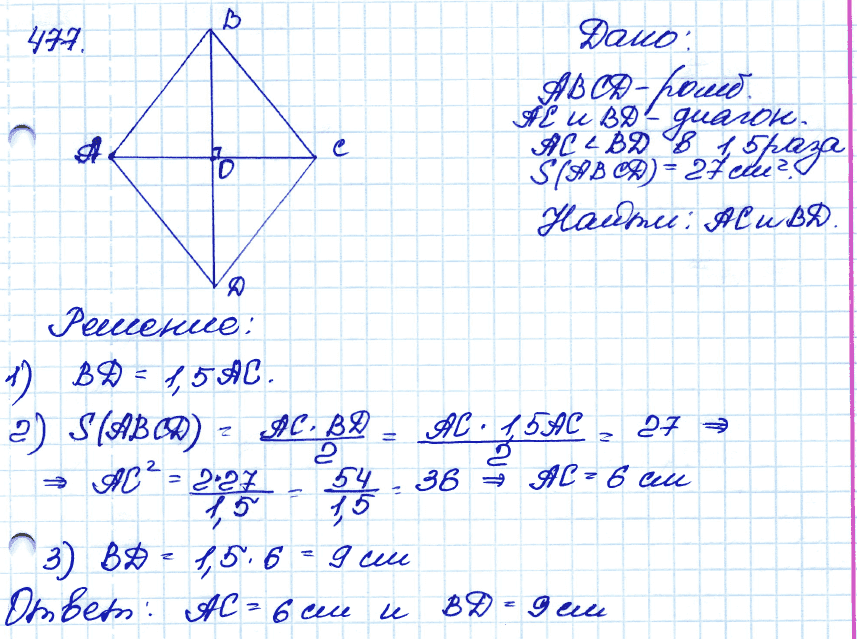 477.
B
A
O
C
D
Дано:
ABCD - ромб.
AC и BD - диагон.
AC < BD в 1,5 раза
S(ABCD) = 27 см².
Найти: AC и BD.
Решение:
1) BD = 1,5 AC.
2) S(ABCD) = AC · BD / 2 = AC · 1,5AC / 2 = 27 ⇒
⇒ AC² = 2·27 / 1,5 = 54 / 1,5 = 36 ⇒ AC = 6 см
3) BD = 1,5 · 6 = 9 см
Ответ: AC = 6 см и BD = 9 см